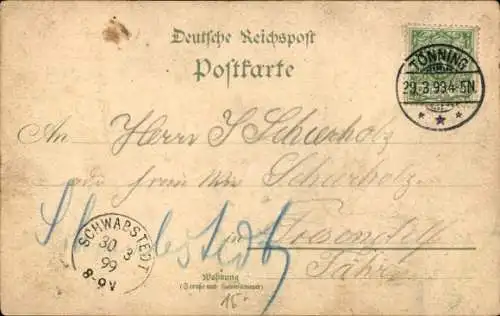 Deutsche Reichspost
Postkarte
TÖNNING
29.3.99.4-5N.
An Herrn J Schierholz
Schierholz
Schwabstedt
in
Fähre
SCHWABSTEDT
30 3
99
8-9V
Wohnung
(Straße und Hausnummer)
15.-